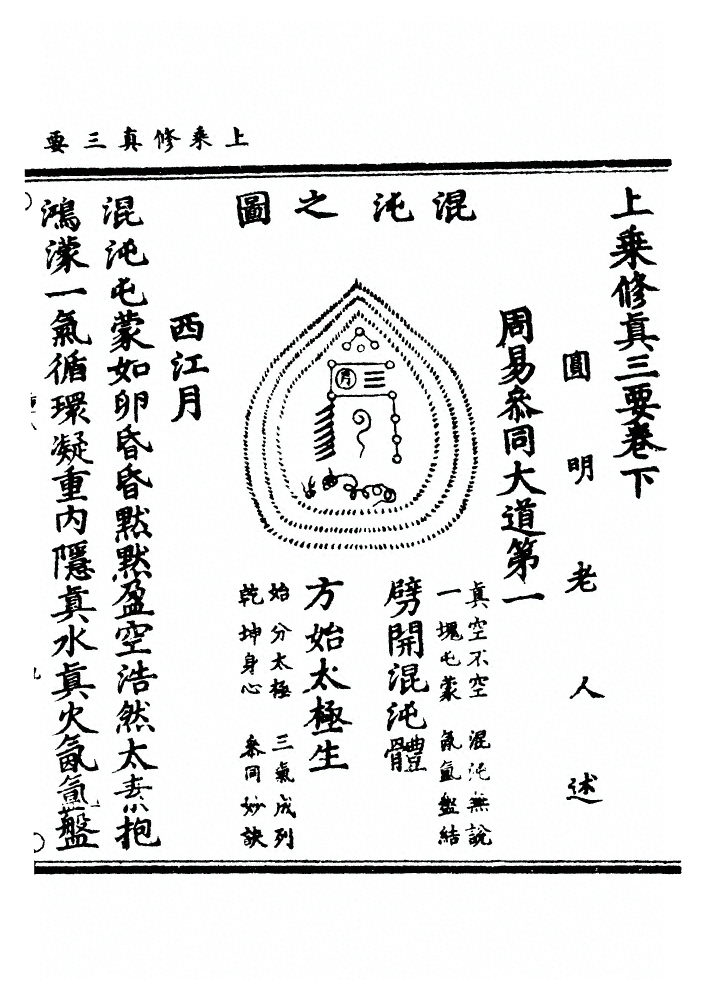 上乘修真三要
上乘修真三要卷下
圓明老人述
周易叅同大道第一
混沌之圖
月
真空不空 混沌無說
一塊屯蒙 氤氳盤結
劈開混沌體
方始太極生
始分太極 三氣成列
乾坤身心 叅同妙訣
西江月
混沌屯蒙如卵昏昏黙黙盈空浩然太素抱
鴻濛一氣循環凝重內隱真水真火氤氳盤